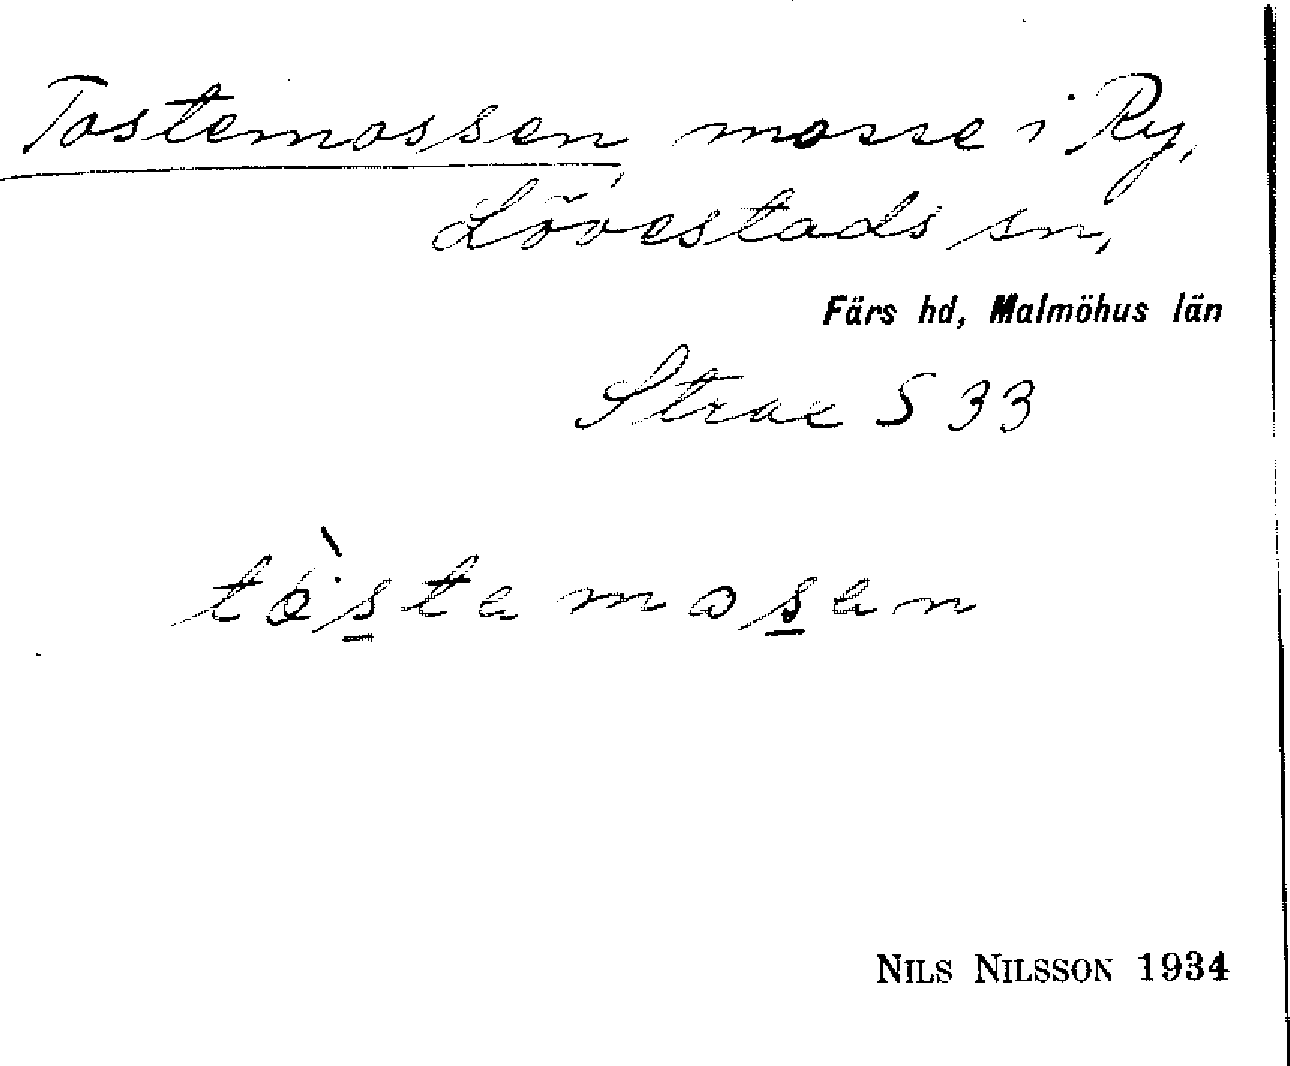 Tostemossen, mosse i Ry,
Lövestads sn,
Färs hd, Malmöhus län
S 33
tòstamosan
NILS NILSSON 1934